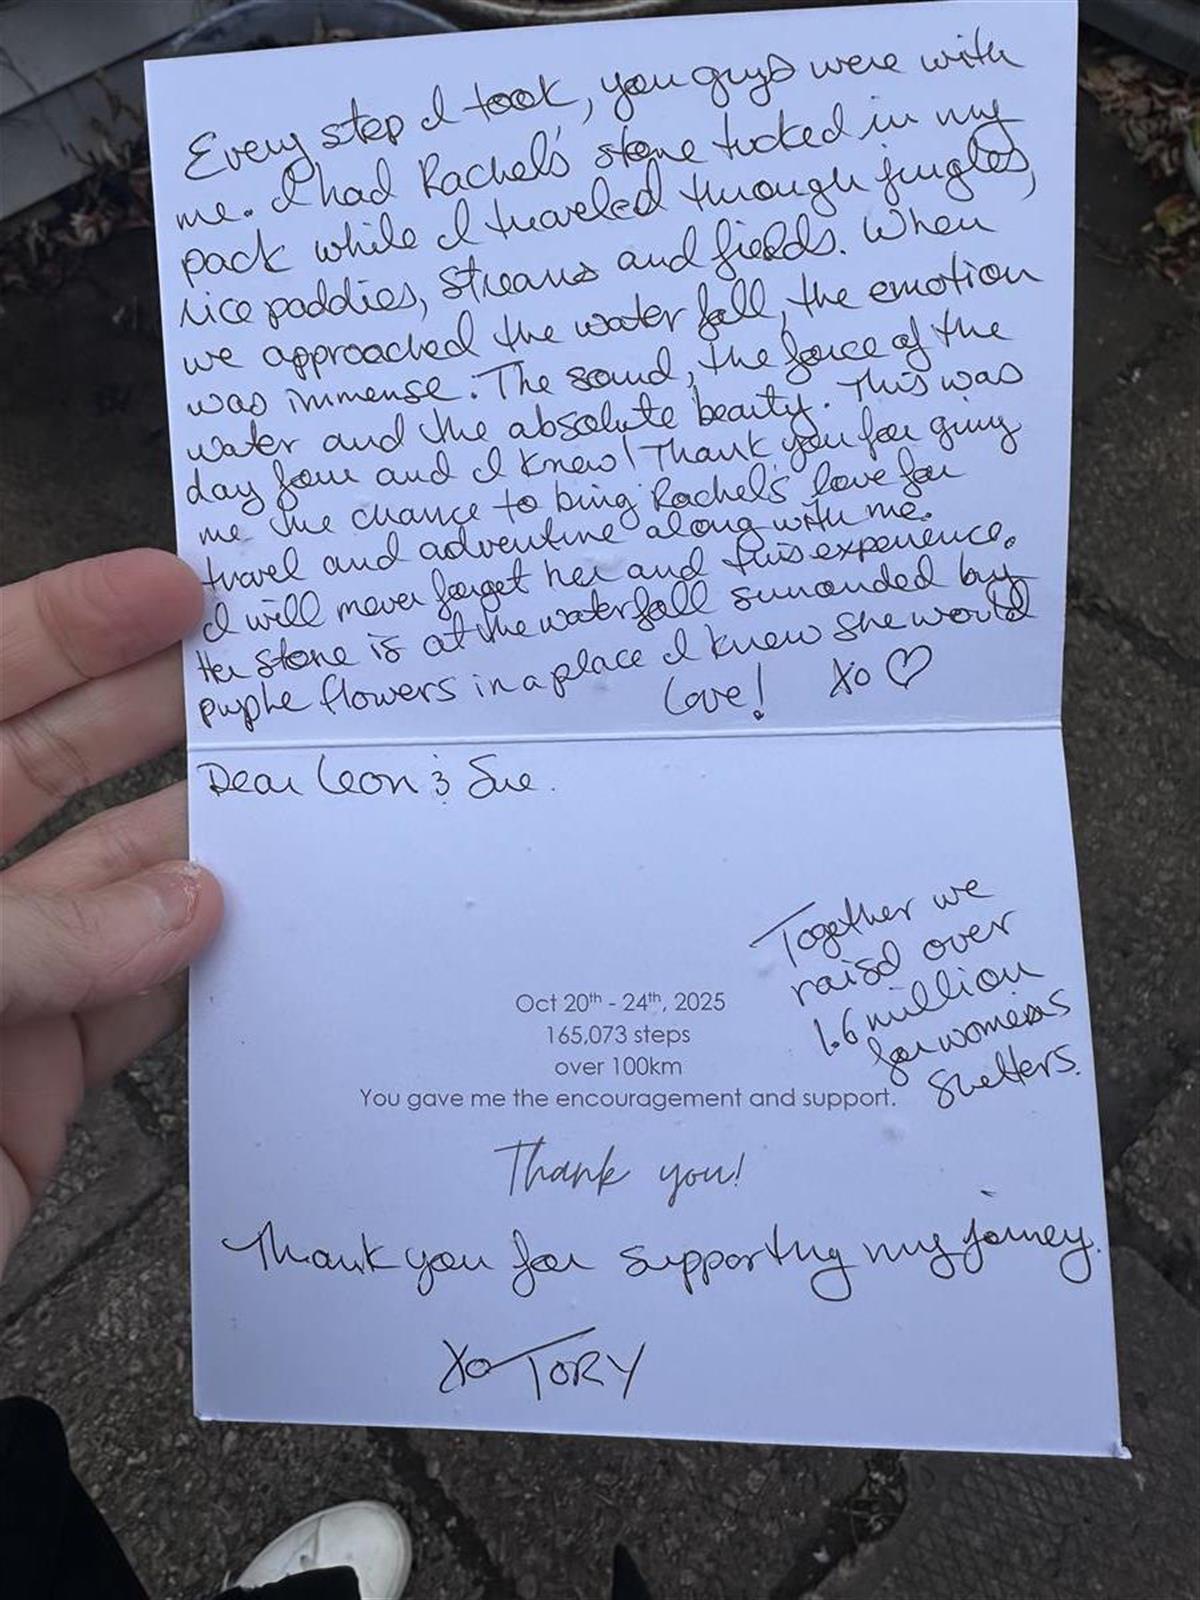 Every step I took, you guys were with
me. I had Rachel's stone tucked in my
pack while I traveled through jungles,
rice paddies, streams and fields. When
we approached the water fall, the emotion
was immense. The sound, the force of the
water and the absolute beauty. This was
day four and I knew! Thank you for giving
me the chance to bring Rachel's love for
travel and adventure along with me.
I will never forget her and this experience.
Her stone is at the waterfall surrounded by
purple flowers in a place I knew she would
love! xo ♡
Dear Leon & Sue.
Together we
raised over
1.6 million
for womens
shelters.
Oct 20th - 24th, 2025
165,073 steps
over 100km
You gave me the encouragement and support.
Thank you!
Thank you for supporting my journey.
xo TORY